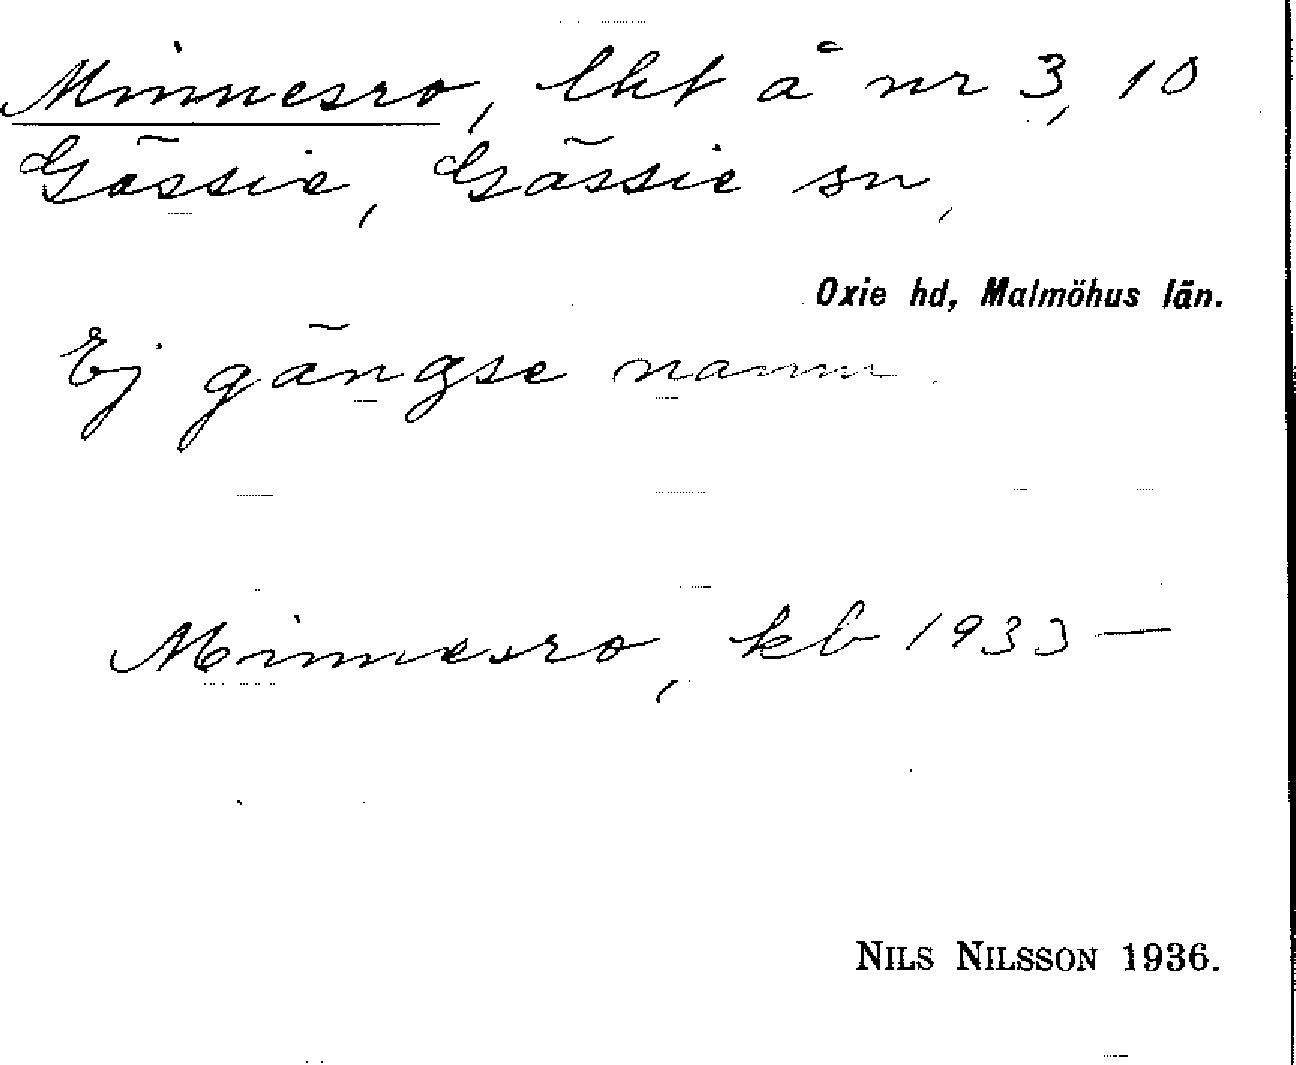 Minnesro, lht å nr 3, 10
Gässie, Gässie sn,
Oxie hd, Malmöhus län.
Ej gängse namn.
Minnesro, kb 1933—
NILS NILSSON 1936.